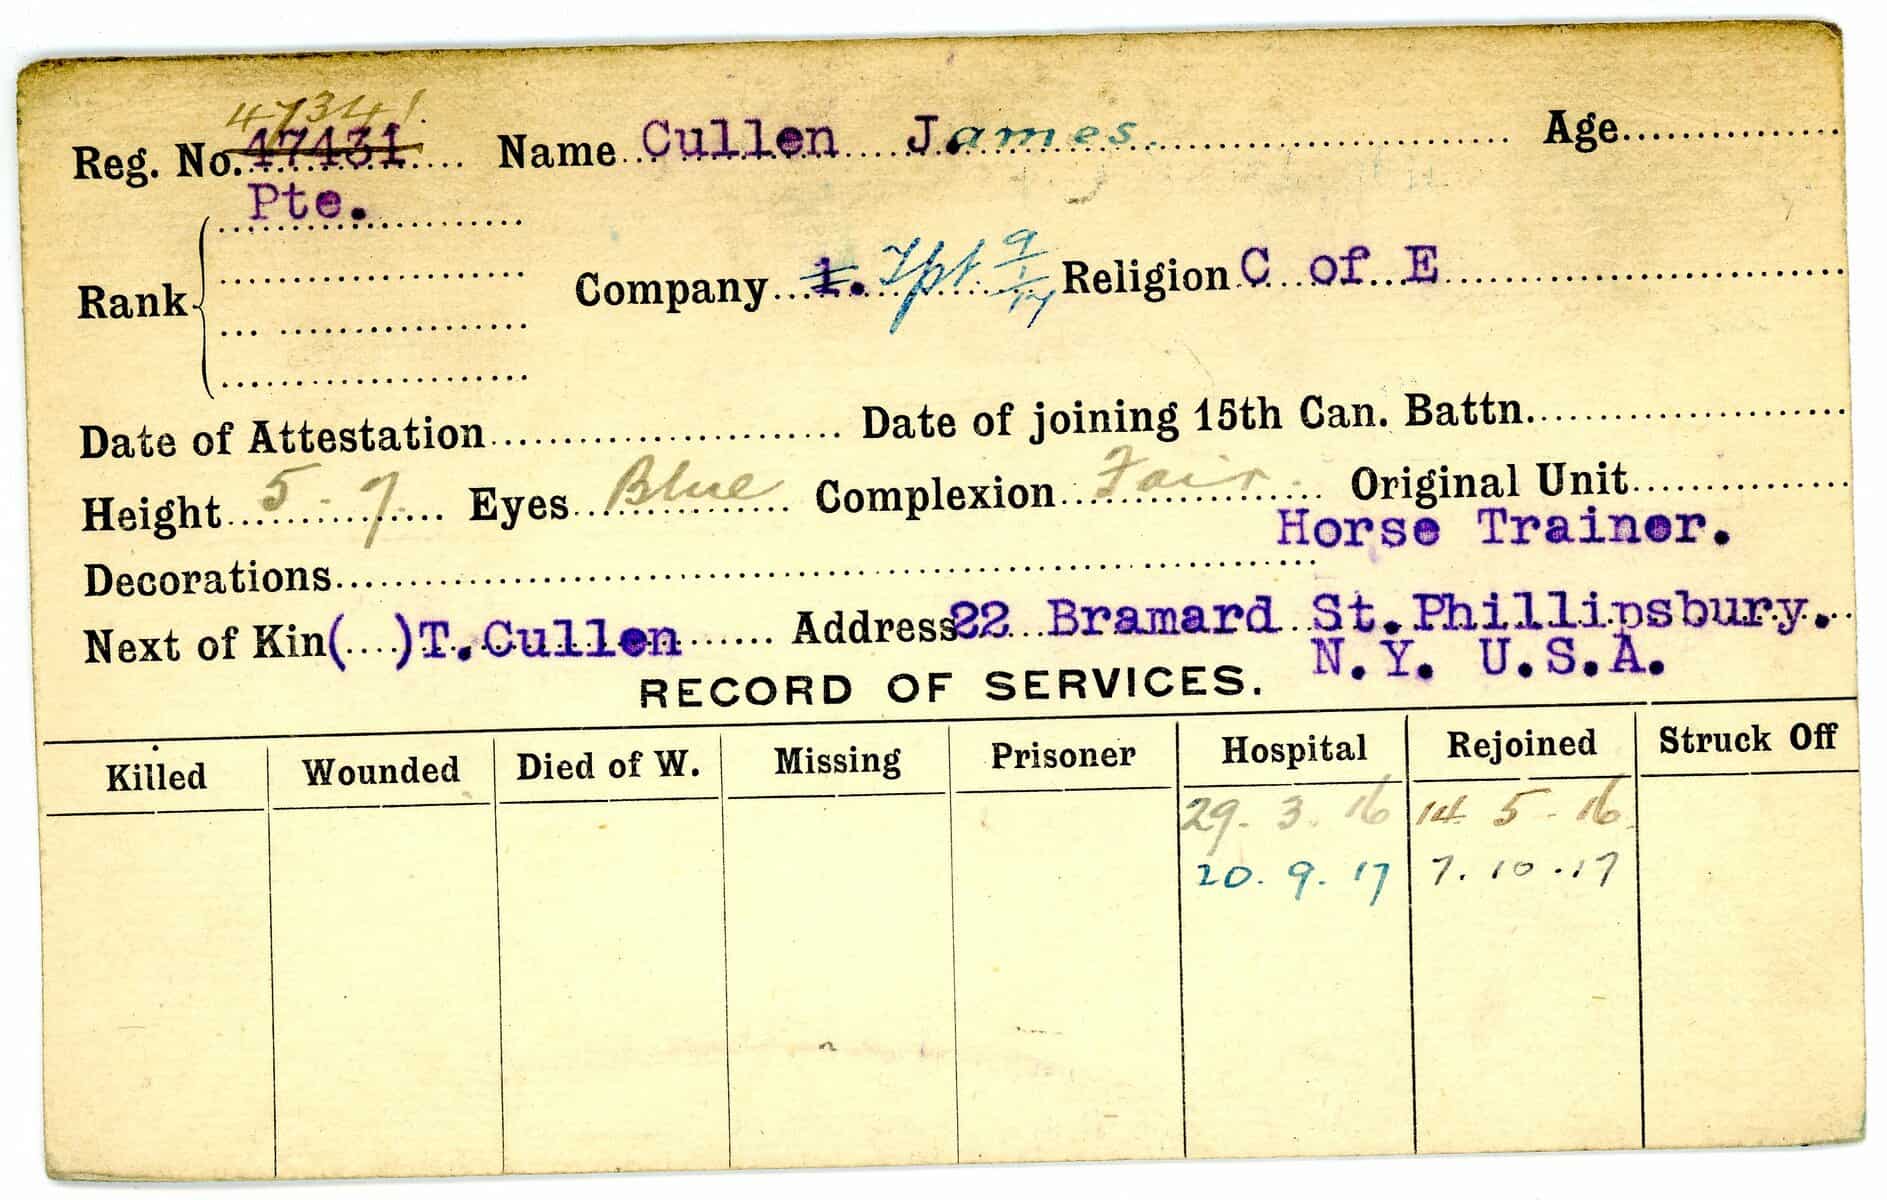 47341.
Reg. No. 47431 Name Cullen James. Age
Pte.
Rank
Company 1. Tpt 9/17 Religion C of E
Date of Attestation Date of joining 15th Can. Battn.
Height 5-7. Eyes Blue Complexion Fair. Original Unit
Horse Trainer.
Decorations
Next of Kin ( ) T. Cullen Address 22 Bramard St. Phillipsbury.
N.Y. U.S.A.
RECORD OF SERVICES.
Killed Wounded Died of W. Missing Prisoner Hospital Rejoined Struck Off
29. 3. 16 14. 5. 16
20. 9. 17 7. 10. 17